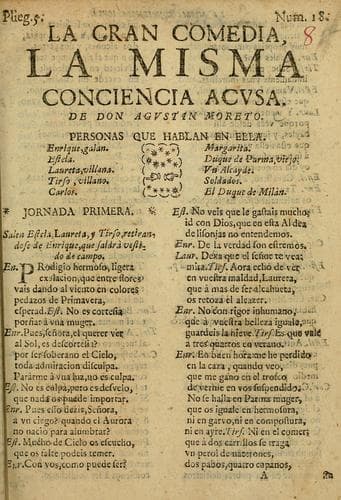 Plieg. 5. Num. 18.
8
LA GRAN COMEDIA,
LA MISMA
CONCIENCIA ACVSA.
DE DON AGVSTIN MORETO.
PERSONAS QUE HABLAN EN ELLA.
Enrique, galàn.
Estela.
Laureta, villana.
Tirso, villano.
Carlos.
Margarita.
Duque de Parma, viejo.
Vn Alcayde.
Soldados.
El Duque de Milàn.
* JORNADA PRIMERA. *
Salen Estela, Laureta, y Tirso, retiran-
dose de Enrique, que saldrà vesti-
do de campo.
En. PRodigio hermoso, ligera
exalacion, que entre flores
vais dando al viento en colores
pedazos de Primavera,
esperad. Est. No es cortesia
porfiar à vna muger.
Enr. Pues, Señora, el querer ver
al Sol, es descortesia?
por ser soberano el Cielo,
toda admiracion disculpa.
Pararme à vna luz, no es culpa.
Est. No es culpa, pero es desvelo,
que nada os puede importar.
Enr. Pues esso dezis, Señora,
à vn ciego? quando el Aurora
no nacio para alumbrar?
Est. Mucho de Cielo os escucho,
que os falte podeis temer.
Enr. Con vos, como puede ser?
Est. No veis que le gastais mucho;
id con Dios, que en esta Aldea
de lisonjas no entendemos.
Enr. De la verdad son estremos.
Laur. Dexa que el señor te vea;
mira. Tirs. Aora echo de ver
en vuessa maldad, Laureta,
que à mas de ser alcahueta,
os retoza el alcazer.
Enr. No con rigor inhumano,
que à vuestra belleza iguala,
guardeis la nieve. Tirs. Es que vale
à tres quartos en verano.
Enr. En buen hora me he perdido
en la caza, quando veo,
que me gano en el trofeo
de verme en vos suspendido.
No se halla en Parma muger,
que os iguale en hermosura,
ni en garvo, ni en compostura,
ni en ayre. Tirs. Ni en el comer;
que à dos carrillos se traga
vn perol de naterones,
dos pabos, quatro capones,
A